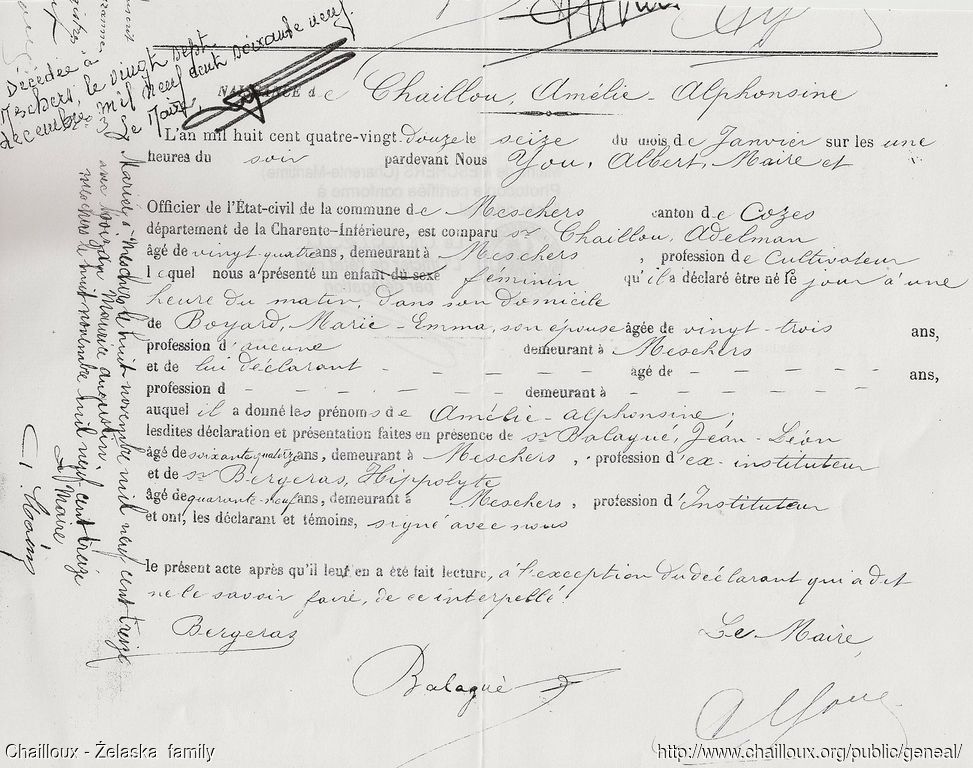 Décédée à
Meschers le vingt sept
décembre mil neuf cent soixante neuf.
Le Maire,
NAISSANCE de Chaillou, Amélie-Alphonsine
L'an mil huit cent quatre-vingt douze le seize du mois de Janvier sur les une
heures du soir pardevant Nous You, Albert, Maire et
Officier de l'État-civil de la commune de Meschers canton de Cozes
département de la Charente-Inférieure, est comparu sr Chaillou, Adelman
âgé de vingt-quatre ans, demeurant à Meschers, profession de Cultivateur
lequel nous a présenté un enfant du sexe féminin qu'il a déclaré être né le jour à une
heure du matin, dans son domicile
de Boyard, Marie-Emma, son épouse âgée de vingt-trois ans,
profession d'aucune demeurant à Meschers
et de lui déclarant - - - - - âgé de - - - - ans,
profession d - - - - demeurant à - - - -
auquel il a donné les prénoms de Amélie-Alphonsine;
lesdites déclaration et présentation faites en présence de sr Balagué, Jean-Léon
âgé de soixante quatorze ans, demeurant à Meschers, profession d'ex-instituteur
et de sr Bergeras, Hippolyte
âgé de quarante-neuf ans, demeurant à Meschers, profession d'Instituteur
et ont, les déclarant et témoins, signé avec nous
le présent acte après qu'il leur en a été fait lecture, à l'exception du déclarant qui a dit
ne le savoir faire, de ce interpellé.
Bergeras
Le Maire,
Balagué
A You
Mariée à Meschers le huit novembre mil neuf cent treize
avec Voizin Maurice Augustin.
Meschers le huit novembre mil neuf cent treize
Le Maire,
Chailloux - Żelaska family
http://www.chailloux.org/public/geneal/